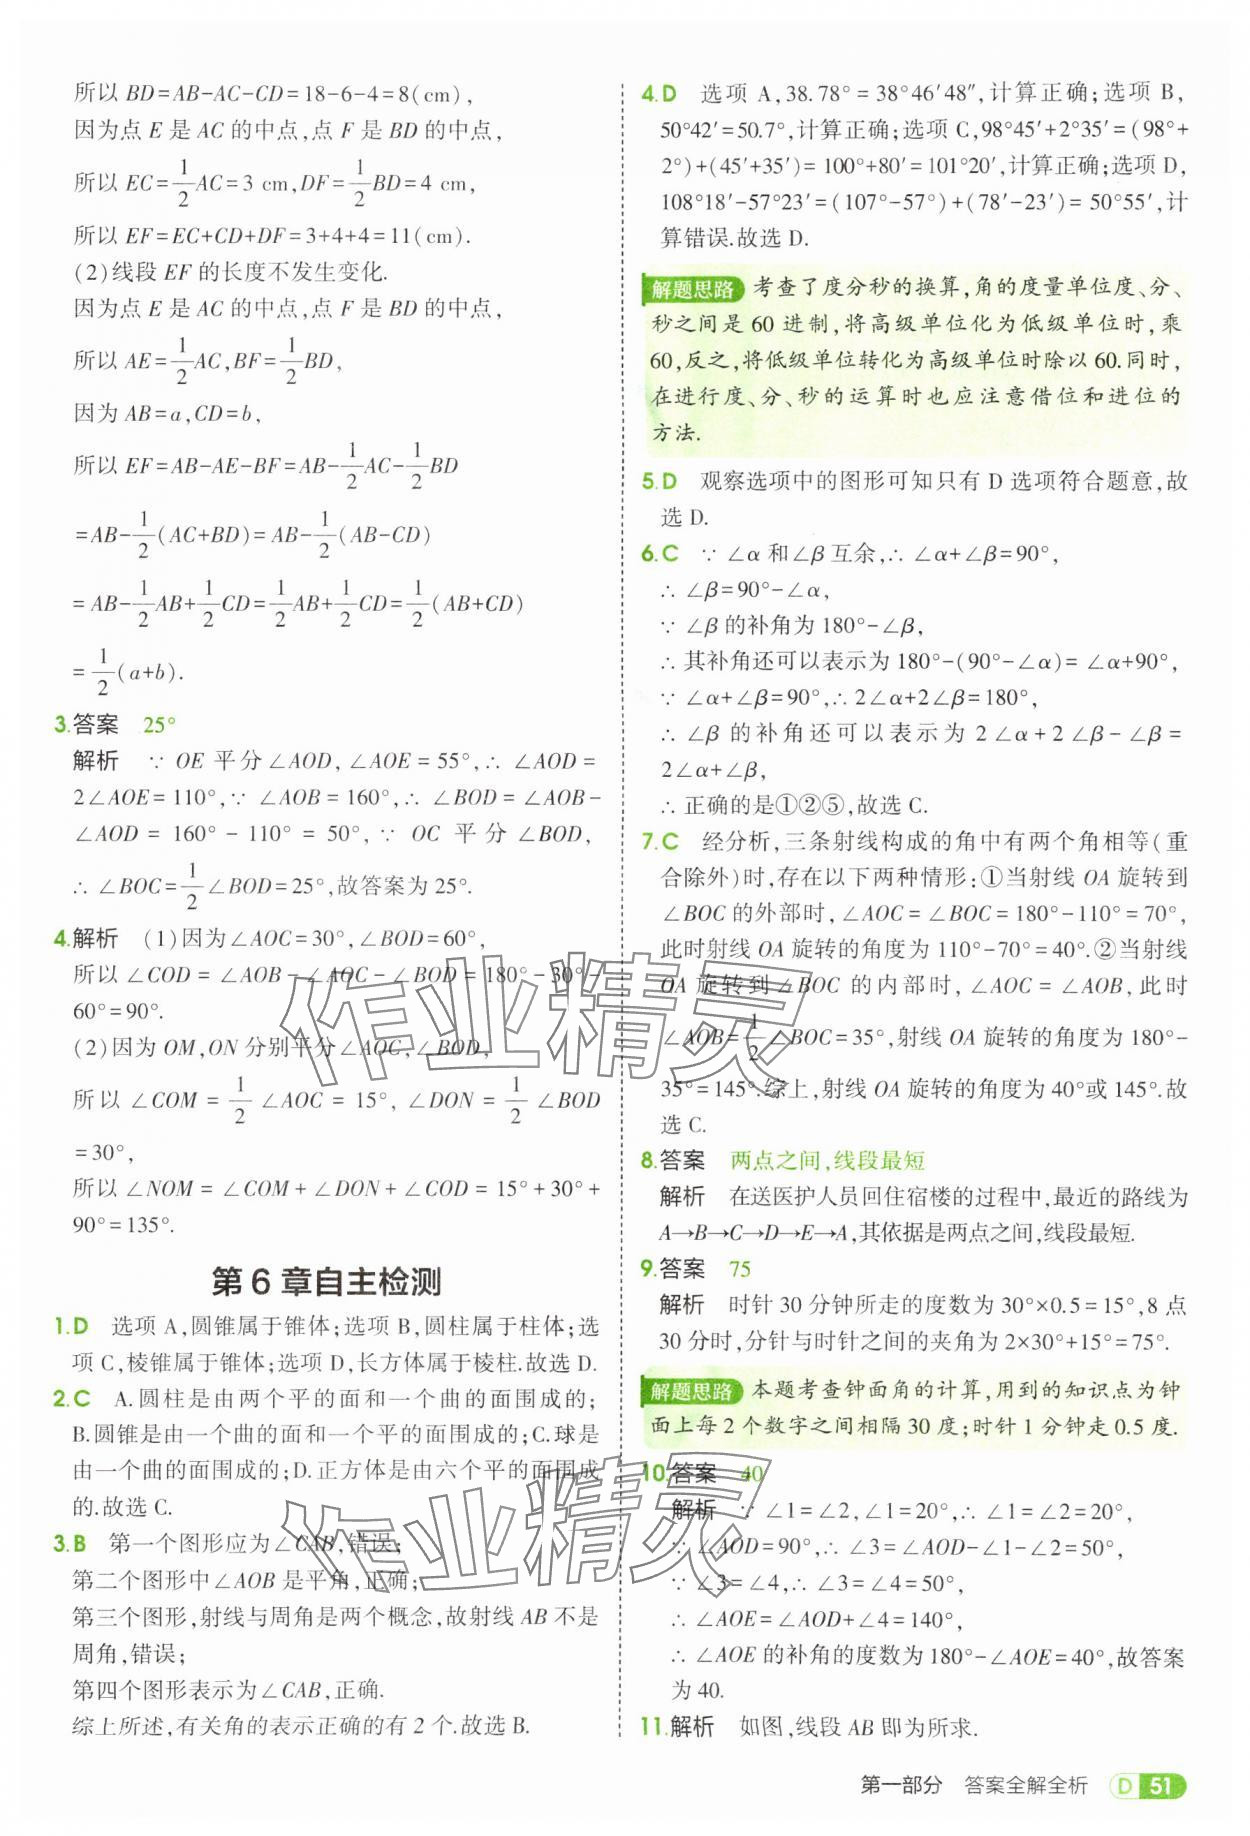 所以 BD=AB-AC-CD=18-6-4=8(cm),
因为点 E 是 AC 的中点,点 F 是 BD 的中点,
所以 EC=1/2AC=3 cm,DF=1/2BD=4 cm,
所以 EF=EC+CD+DF=3+4+4=11(cm).
(2)线段 EF 的长度不发生变化.
因为点 E 是 AC 的中点,点 F 是 BD 的中点,
所以 AE=1/2AC,BF=1/2BD,
因为 AB=a,CD=b,
所以 EF=AB-AE-BF=AB-1/2AC-1/2BD
=AB-1/2(AC+BD)=AB-1/2(AB-CD)
=AB-1/2AB+1/2CD=1/2AB+1/2CD=1/2(AB+CD)
=1/2(a+b).
3.答案 25°
解析 ∵ OE 平分∠AOD,∠AOE=55°,∴ ∠AOD=
2∠AOE=110°,∵ ∠AOB=160°,∴ ∠BOD=∠AOB-
∠AOD=160°-110°=50°,∵ OC 平分∠BOD,
∴ ∠BOC=1/2∠BOD=25°,故答案为 25°.
4.解析 (1)因为∠AOC=30°,∠BOD=60°,
所以∠COD=∠AOB-∠AOC-∠BOD=180°-30°-
60°=90°.
(2)因为 OM,ON 分别平分∠AOC,∠BOD,
所以∠COM=1/2∠AOC=15°,∠DON=1/2∠BOD
=30°,
所以∠NOM=∠COM+∠DON+∠COD=15°+30°+
90°=135°.
第 6 章自主检测
1.D 选项 A,圆锥属于锥体;选项 B,圆柱属于柱体;选
项 C,棱锥属于锥体;选项 D,长方体属于棱柱.故选 D.
2.C A.圆柱是由两个平的面和一个曲的面围成的;
B.圆锥是由一个曲的面和一个平的面围成的;C.球是
由一个曲的面围成的;D.正方体是由六个平的面围成
的.故选 C.
3.B 第一个图形应为∠CAB,错误;
第二个图形中∠AOB 是平角,正确;
第三个图形,射线与周角是两个概念,故射线 AB 不是
周角,错误;
第四个图形表示为∠CAB,正确.
综上所述,有关角的表示正确的有 2 个.故选 B.
4.D 选项 A,38.78°=38°46′48″,计算正确;选项 B,
50°42′=50.7°,计算正确;选项 C,98°45′+2°35′=(98°+
2°)+(45′+35′)=100°+80′=101°20′,计算正确;选项 D,
108°18′-57°23′=(107°-57°)+(78′-23′)=50°55′,计
算错误.故选 D.
解题思路 考查了度分秒的换算,角的度量单位度、分、
秒之间是 60 进制,将高级单位化为低级单位时,乘
60,反之,将低级单位转化为高级单位时除以 60.同时,
在进行度、分、秒的运算时也应注意借位和进位的
方法.
5.D 观察选项中的图形可知只有 D 选项符合题意,故
选 D.
6.C ∵ ∠α 和∠β 互余,∴ ∠α+∠β=90°,
∴ ∠β=90°-∠α,
∵ ∠β 的补角为 180°-∠β,
∴ 其补角还可以表示为 180°-(90°-∠α)=∠α+90°,
∵ ∠α+∠β=90°,∴ 2∠α+2∠β=180°,
∴ ∠β 的补角还可以表示为 2∠α+2∠β-∠β=
2∠α+∠β,
∴ 正确的是①②⑤,故选 C.
7.C 经分析,三条射线构成的角中有两个角相等(重
合除外)时,存在以下两种情形:①当射线 OA 旋转到
∠BOC 的外部时,∠AOC=∠BOC=180°-110°=70°,
此时射线 OA 旋转的角度为 110°-70°=40°.②当射线
OA 旋转到∠BOC 的内部时,∠AOC=∠AOB,此时
∠AOB=1/2∠BOC=35°,射线 OA 旋转的角度为 180°-
35°=145°.综上,射线 OA 旋转的角度为 40°或 145°.故
选 C.
8.答案 两点之间,线段最短
解析 在送医护人员回住宿楼的过程中,最近的路线为
A→B→C→D→E→A,其依据是两点之间,线段最短.
9.答案 75
解析 时针 30 分钟所走的度数为 30°×0.5=15°,8 点
30 分时,分针与时针之间的夹角为 2×30°+15°=75°.
解题思路 本题考查钟面角的计算,用到的知识点为钟
面上每 2 个数字之间相隔 30 度;时针 1 分钟走 0.5 度.
10.答案 40
解析 ∵ ∠1=∠2,∠1=20°,∴ ∠1=∠2=20°,
∵ ∠AOD=90°,∴ ∠3=∠AOD-∠1-∠2=50°,
∵ ∠3=∠4,∴ ∠3=∠4=50°,
∴ ∠AOE=∠AOD+∠4=140°,
∴ ∠AOE 的补角的度数为 180°-∠AOE=40°,故答案
为 40.
11.解析 如图,线段 AB 即为所求.
第一部分 答案全解全析 D 51
作业精灵
作业精灵